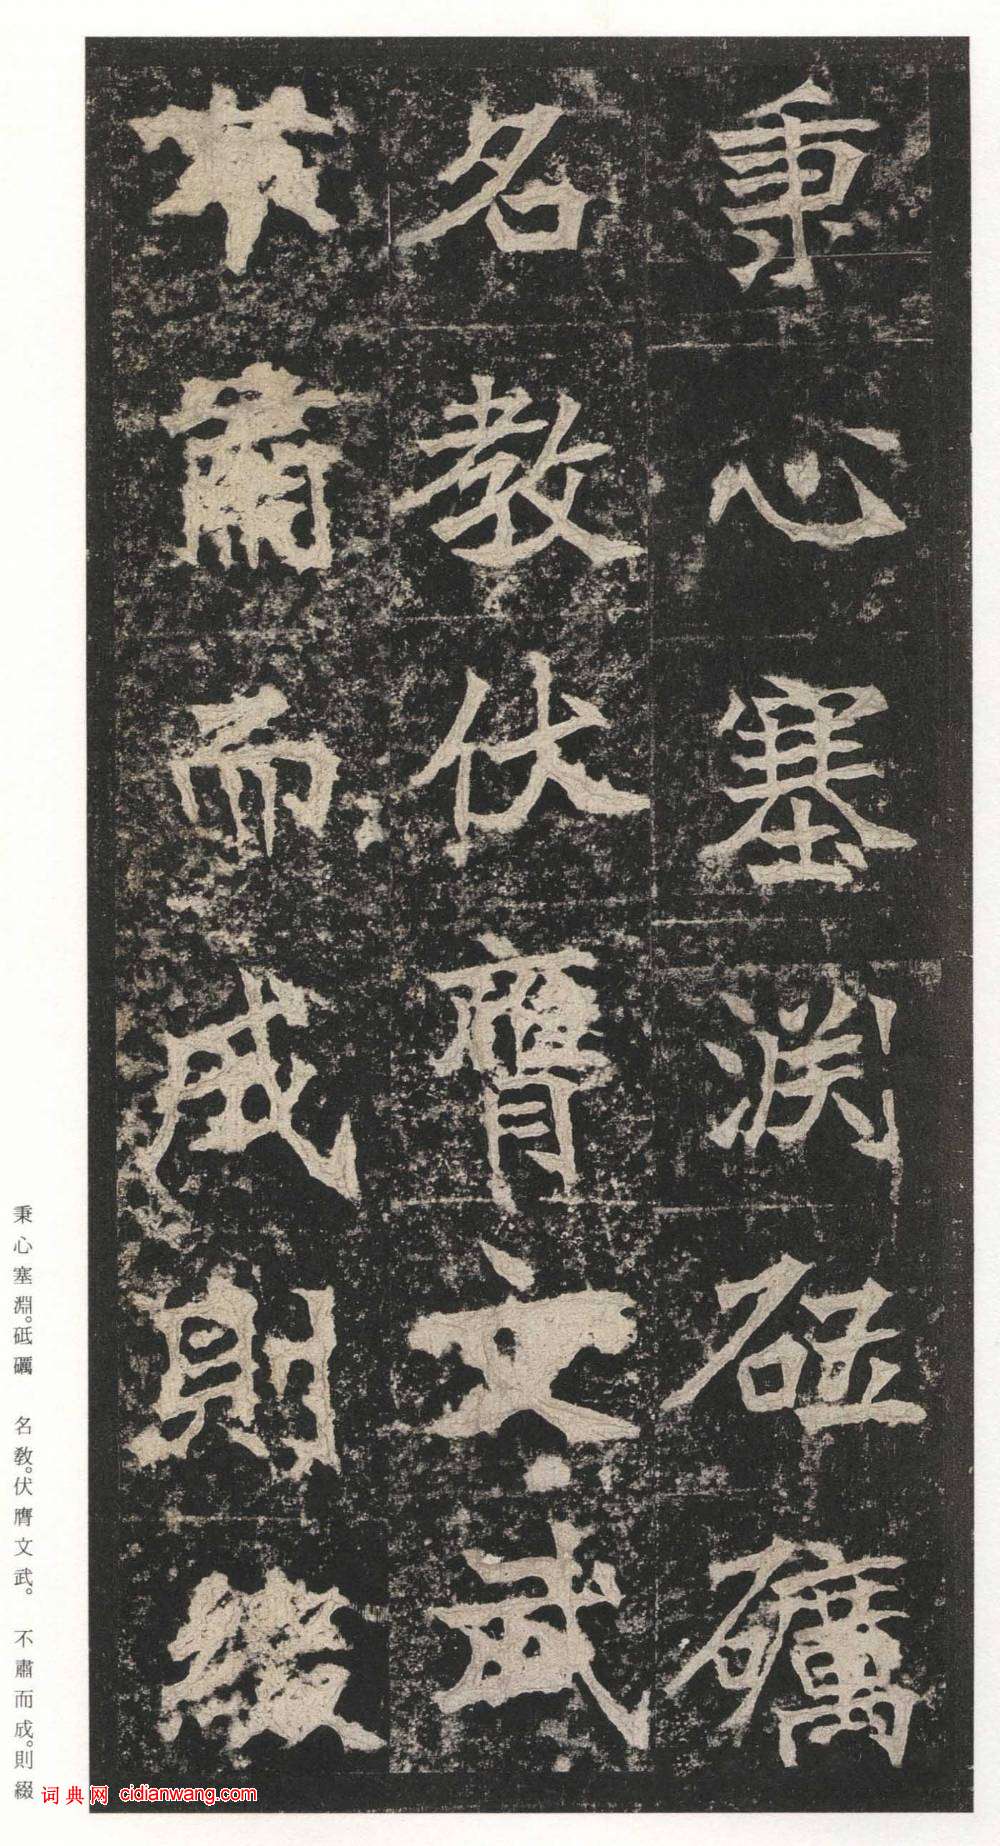 秉心塞淵砥礪
名教伏膺文武
不肅而成則綴
秉心塞淵。砥礪　名教。伏膺文武。　不肅而成。則綴
词典网 cidianwang.com